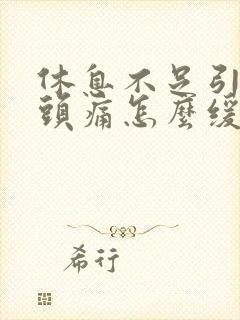 休息不足引
頭痛怎麼緩
希行